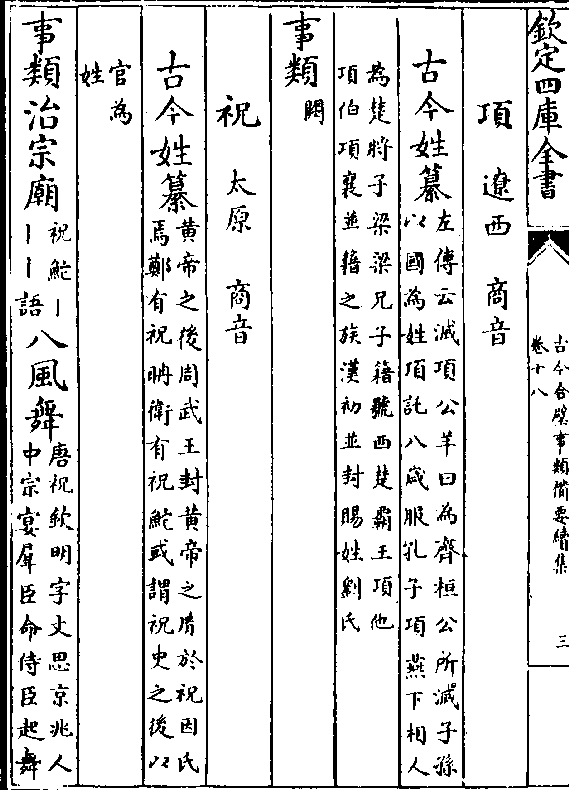 欽定四庫全書
古今合璧事類備要續集
卷十八
三
項 遼西 商音
古今姓纂左傳云滅項公羊曰為齊桓公所滅子孫
以國為姓項託八歲服孔子項燕下相人
為楚將子梁梁兄子籍號西楚霸王項他
項伯項襄並籍之族漢初並封賜姓劉氏
事類闕
祝 太原 商音
古今姓纂黃帝之後周武王封黃帝之𦙍於祝因氏
焉鄭有祝聃衛有祝鮀或謂祝史之後以
官為
姓
事類治宗廟祝鮀丨
丨丨語八風舞唐祝欽明字文思京兆人
中宗宴羣臣命侍臣起舞